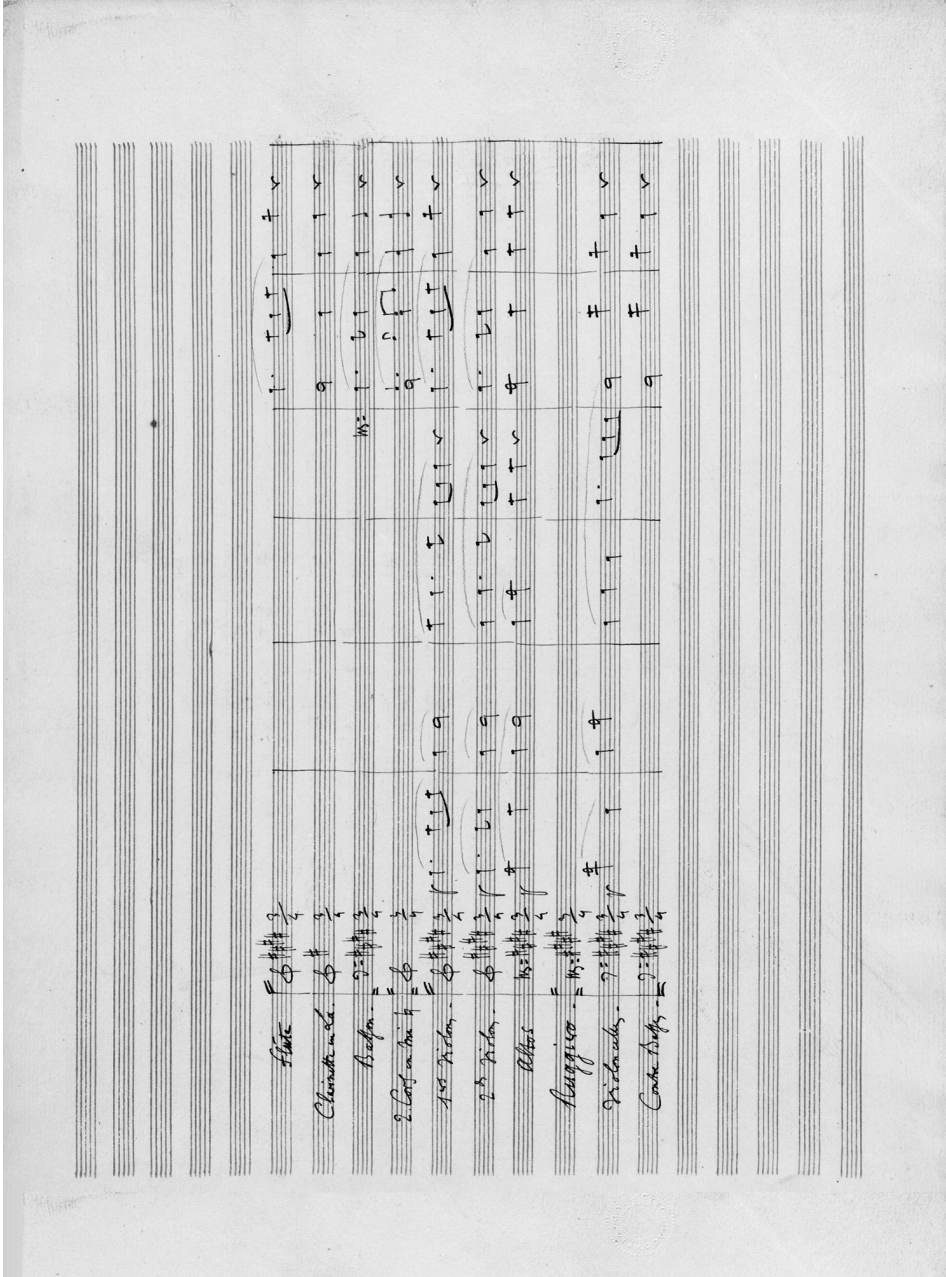 Flûte
Clarinette en La.
Basson -
2. Cors en mi ♮
1ers Violons -
2ds Violons -
Altos
Ruggiero -
Violoncelles -
Contre Basses -